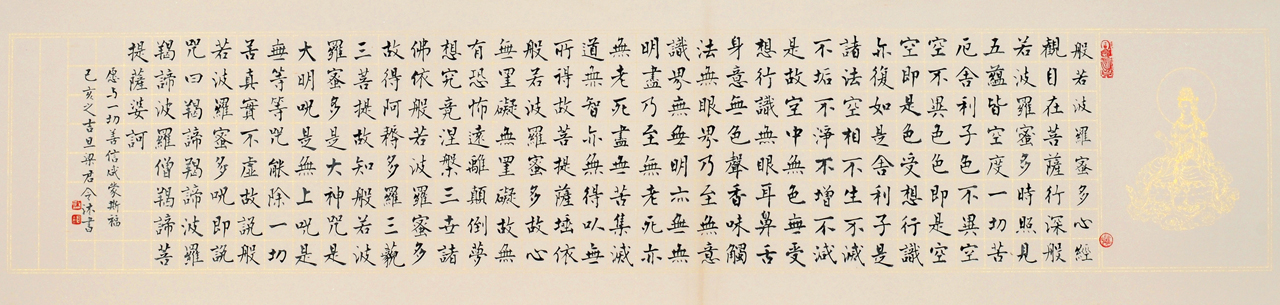 般若波羅蜜多心經
觀自在菩薩行深般
若波羅蜜多時照見
五蘊皆空度一切苦
厄舍利子色不異空
空不異色色即是空
空即是色受想行識
亦復如是舍利子是
諸法空相不生不滅
不垢不淨不增不減
是故空中無色無受
想行識無眼耳鼻舌
身意無色聲香味觸
法無眼界乃至無意
識界無無明亦無無
明盡乃至無老死亦
無老死盡無苦集滅
道無智亦無得以無
所得故菩提薩埵依
般若波羅蜜多故心
無罣礙無罣礙故無
有恐怖遠離顛倒夢
想究竟涅槃三世諸
佛依般若波羅蜜多
故得阿耨多羅三藐
三菩提故知般若波
羅蜜多是大神咒是
大明呪是無上呪是
無等等咒能除一切
苦真實不虛故說般
若波羅蜜多呪即說
咒曰羯諦羯諦波羅
羯諦波羅僧羯諦菩
提薩婆訶
愿与一切善信咸蒙斯福
己亥之吉旦梁君令沐書